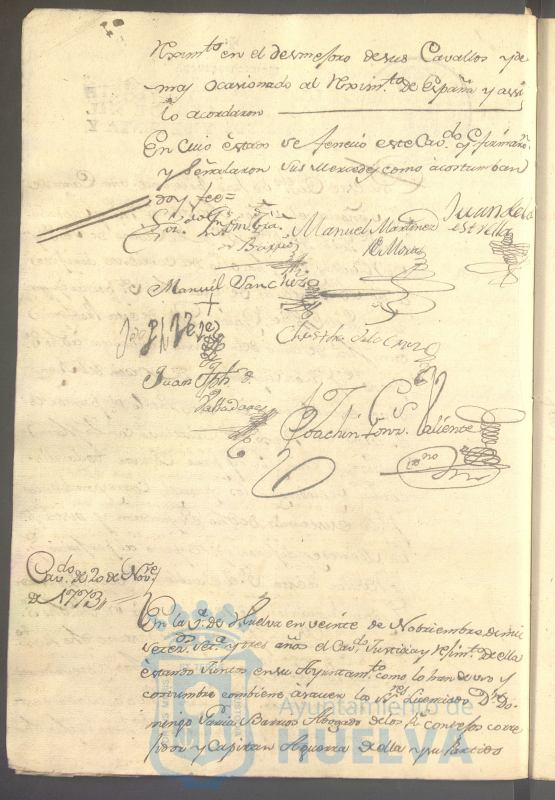 en el desmesoro de sus Cavallos y de
mas ocasionado al de España y assi
lo acordaron
En cuio estado se feneció este Cav.do y firmaron
y señalaron sus Mercedes como acostumbran
doy fee=
Barrio
Manuel Martinez
Mora
Juan de la
estrella
Manuel Sanchez
Juan Jph. d.
Valladares
Joachin Gonz. Valiente
ss.no
Cav.do de 20 de Nov.re
de 1773
En la v.a de Huelva en veinte de Nobiembre de mil
setez.s set.a y tres años el Cav.do Justicia y reximt.o de ella
estando Juntos en su Ayuntam.to como lo han de uso y
costumbre combiene a saver los S.res Lizenciado D.n Do
mingo Maria Barrios Abogado de los R.s consejos corre
xidor y Capitan Aguerra de ella y su Partido
Ayuntamiento de
HUELVA